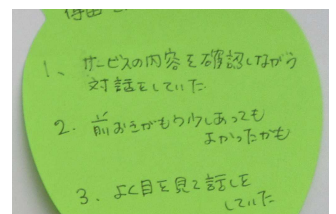 1、サービスの内容を確認しながら
対話をしていた
2. 前おきがもう少しあっても
よかったかも
3. よく目を見て話しを
していた